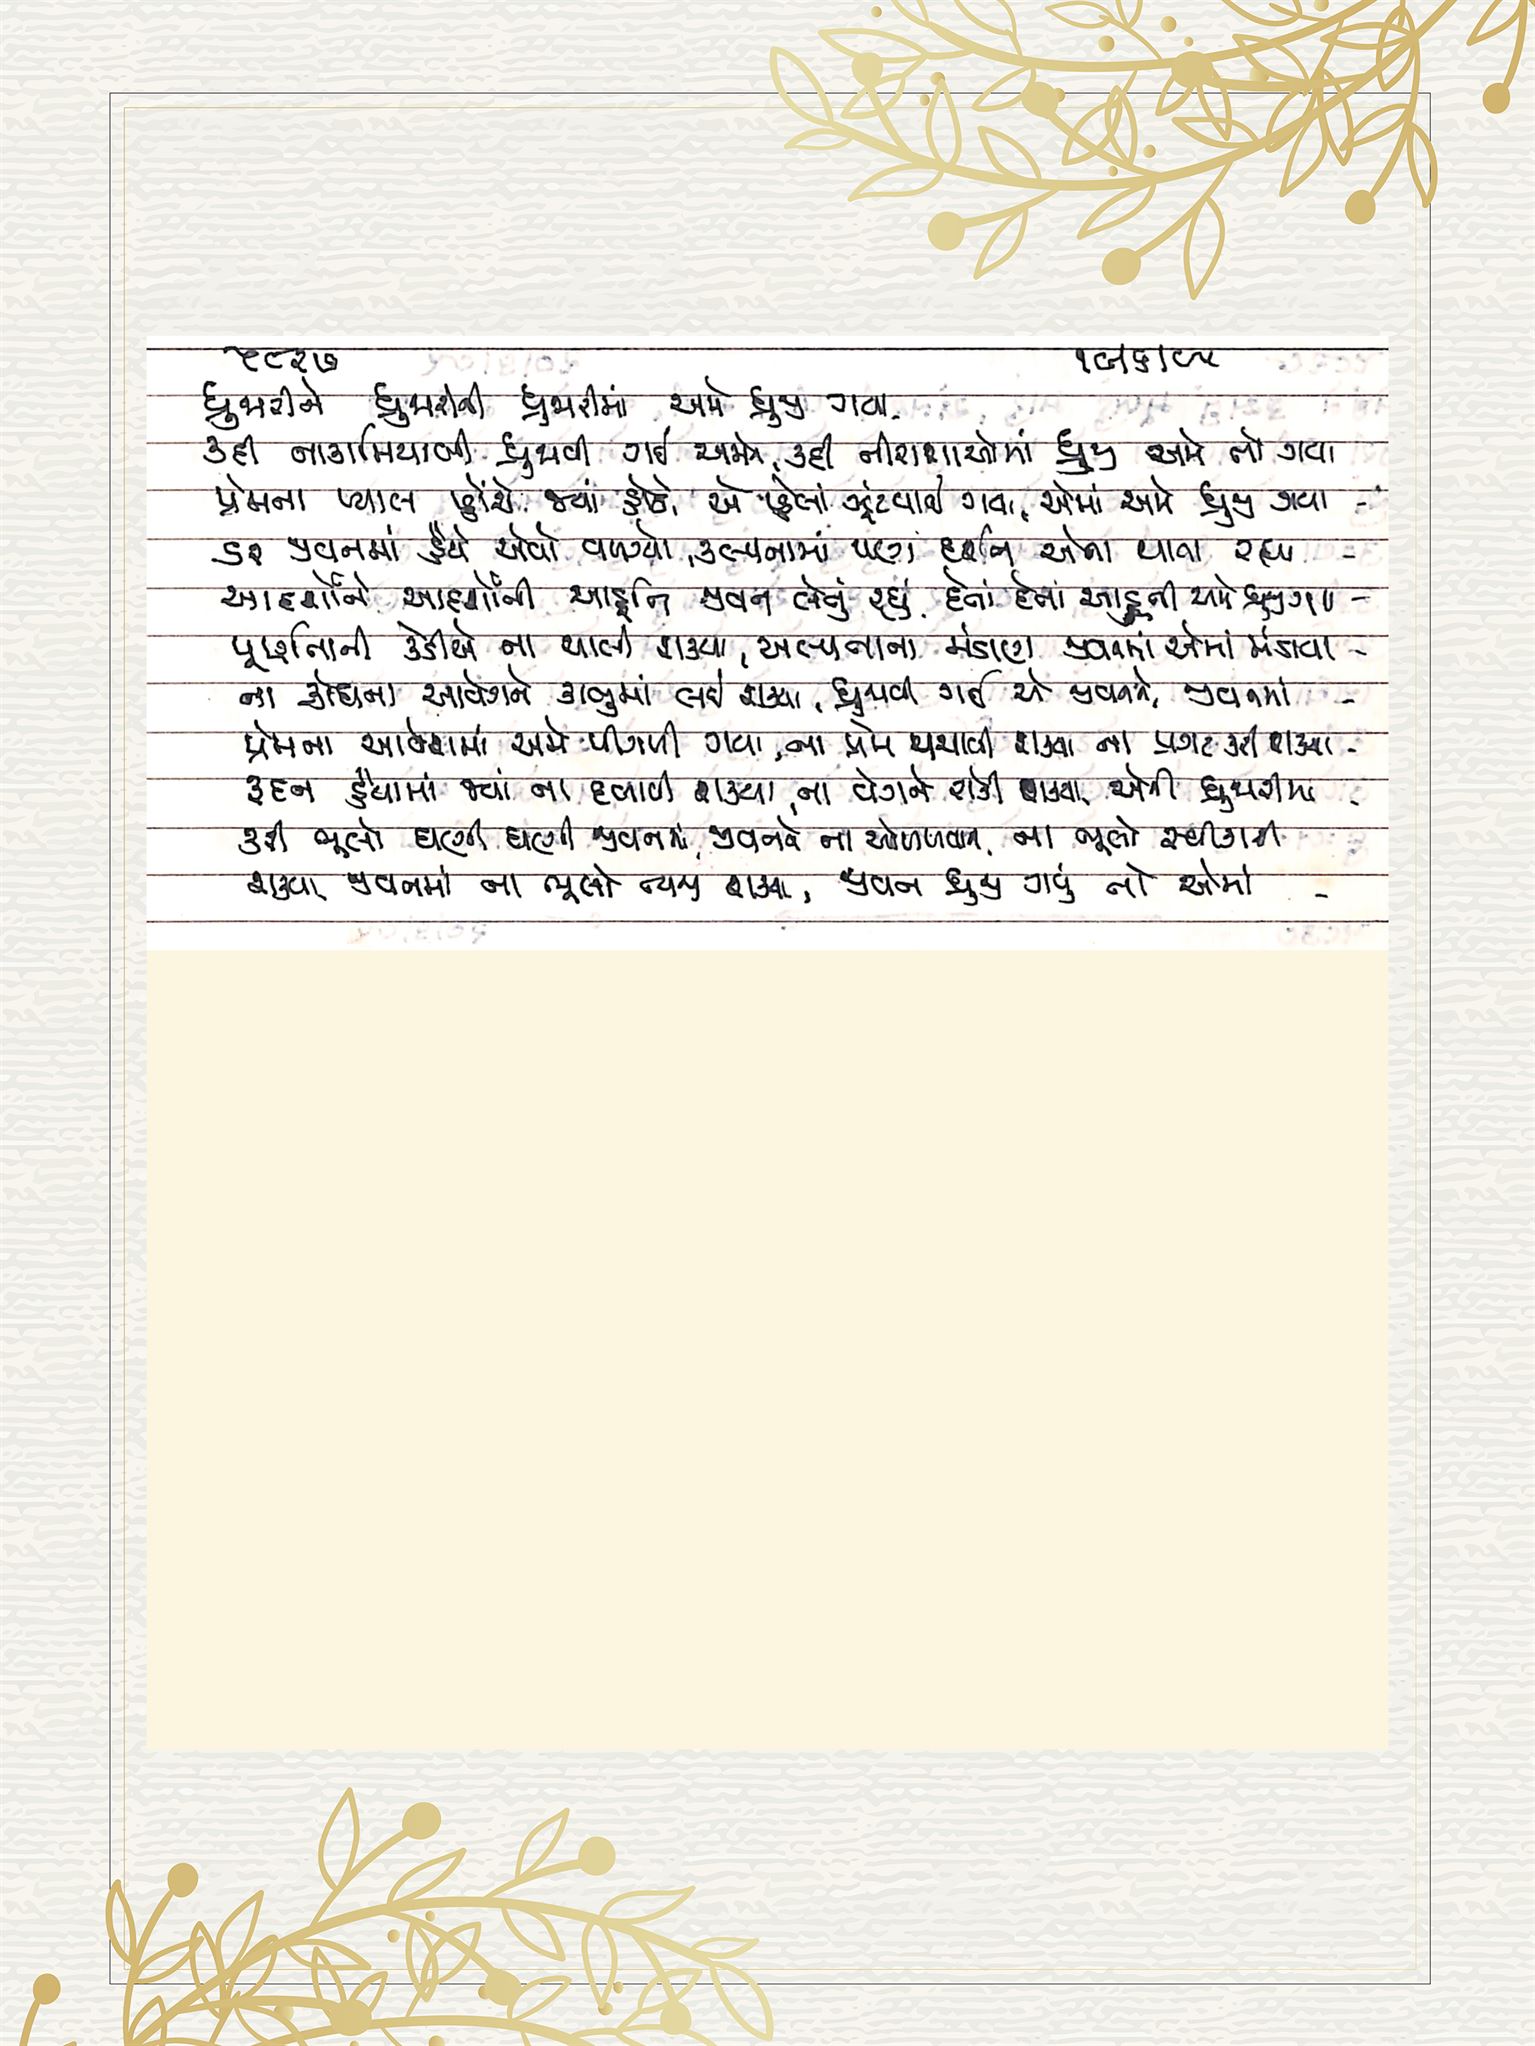 ૬૮૨૭
ધ્રુજારીને ધ્રુજારીની ધ્રુજારીમાં અમે ધ્રુજી ગયા
કદી નાકામિયાબી ધ્રુજાવી ગઈ અમને, કદી નીરાશાઓમાં ધ્રુજી અમે તો ગયા
પ્રેમના પ્યાલા હોંશે જ્યાં હોઠે એ પહેલાં ઝૂંટવાઈ ગયા, એમાં અમે ધ્રુજી ગયા -
ડર જીવનમાં હૈયે એવો વળગ્યો, કલ્પનામાં પણ દર્શન એના થાતા રહ્યા -
આદર્શોને આદર્શોની આહૂતિ જીવન લેતું રહ્યું, દેતાં દેતાં આહૂતી અમે ધ્રુજી ગયા -
પૂર્ણતાની કેડીએ ના ચાલી શક્યા, અલ્પતાના મંડાણ જીવનમાં એમાં મંડાયા -
ના ક્રોધના આવેગને કાબુમાં લઈ શક્યા, ધ્રુજાવી ગઈ એ જીવનને, જીવનમાં -
પ્રેમના આવેશમાં અમે પીગળી ગયા, ના પ્રેમ પચાવી શક્યા ના પ્રગટ કરી શક્યા -
રૂદન હૈયામાં જ્યાં ના દબાવી શક્યા, ના વેગને રોકી શક્યા, એની ધ્રુજારીમાં -
કરી ભૂલો ઘણી ઘણી જીવનમાં, જીવનને ના ઓળખવાની, ના ભૂલો સ્વીકારી
શક્યા, જીવનમાં ના ભૂલો ત્યજી શક્યા, જીવન ધ્રુજી ગયું તો એમાં -